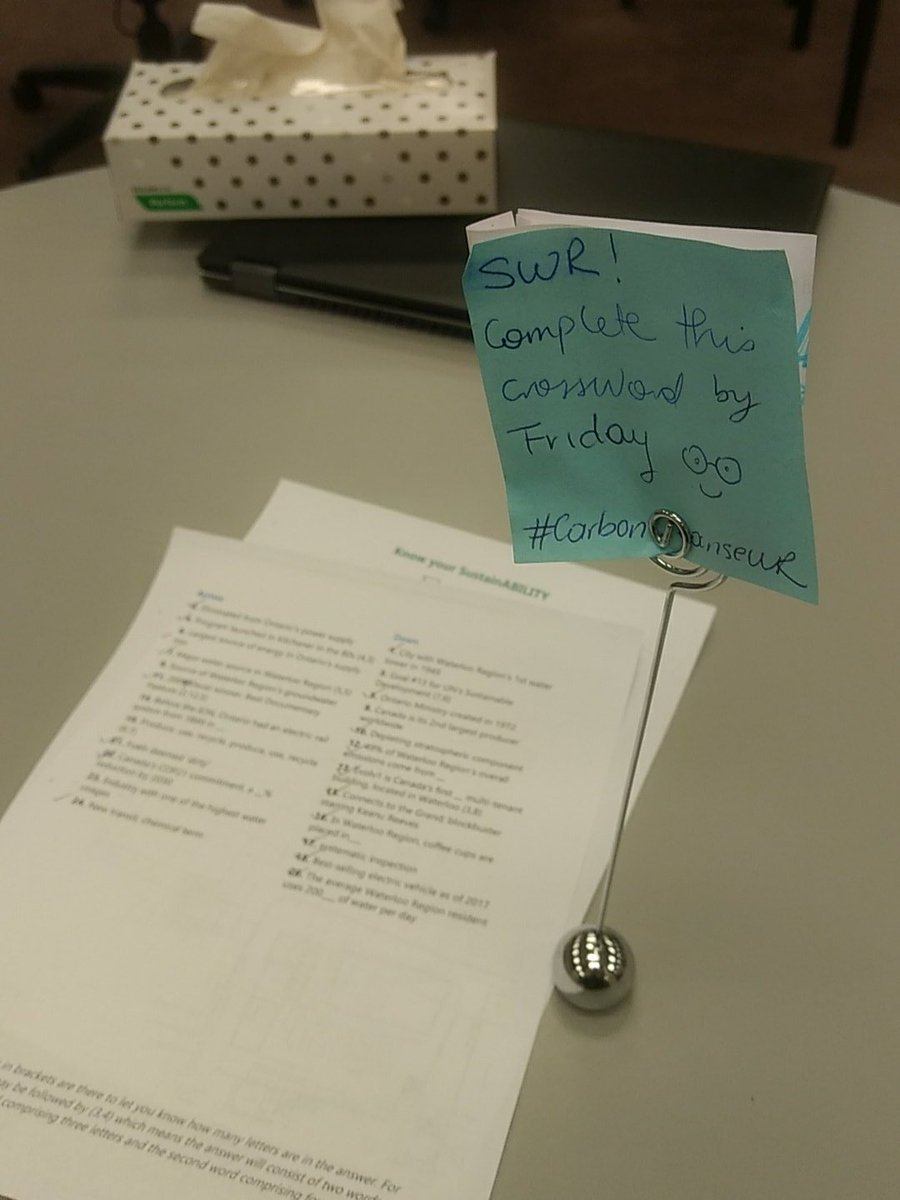 SWR!
Complete this
crossword by
Friday
#Carbon
Know your SustainABILITY
Across
Eliminated from Ontario's power supply
Program launched in Kitchener in the 80s (4,3)
Largest source of energy in Ontario's supply
mix
Major water source in Waterloo Region (5,5)
Source of Waterloo Region's groundwater
Before the 67K, Ontario had an electric rail
system from 1889 in
Produce, use, recycle, produce, use, recycle
Fuels deemed 'dirty'
Canada's COP21 commitment, a __%
reduction by 2030
Industry with one of the highest water
usages
24. New transit, chemical term
Down
City with Waterloo Region's 1st water
tower in 1949
Goal #13 for UN's Sustainable
Development (7,6)
Ontario Ministry created in 1972
Canada is its 2nd largest producer
worldwide
10. Depleting stratospheric component
12. 49% of Waterloo Region's overall
emissions come from __
13. Evolv1 is Canada's first __ multi-tenant
building, located in Waterloo (3,8)
Connects to the Grand; blockbuster
starring Keanu Reeves
In Waterloo Region, coffee cups are
placed in __
17. Systematic inspection
18. Best-selling electric vehicle as of 2017
20. The average Waterloo Region resident
uses 200 __ of water per day
in brackets are there to let you know how many letters are in the answer. For
may be followed by (3,4) which means the answer will consist of two words
comprising three letters and the second word comprising